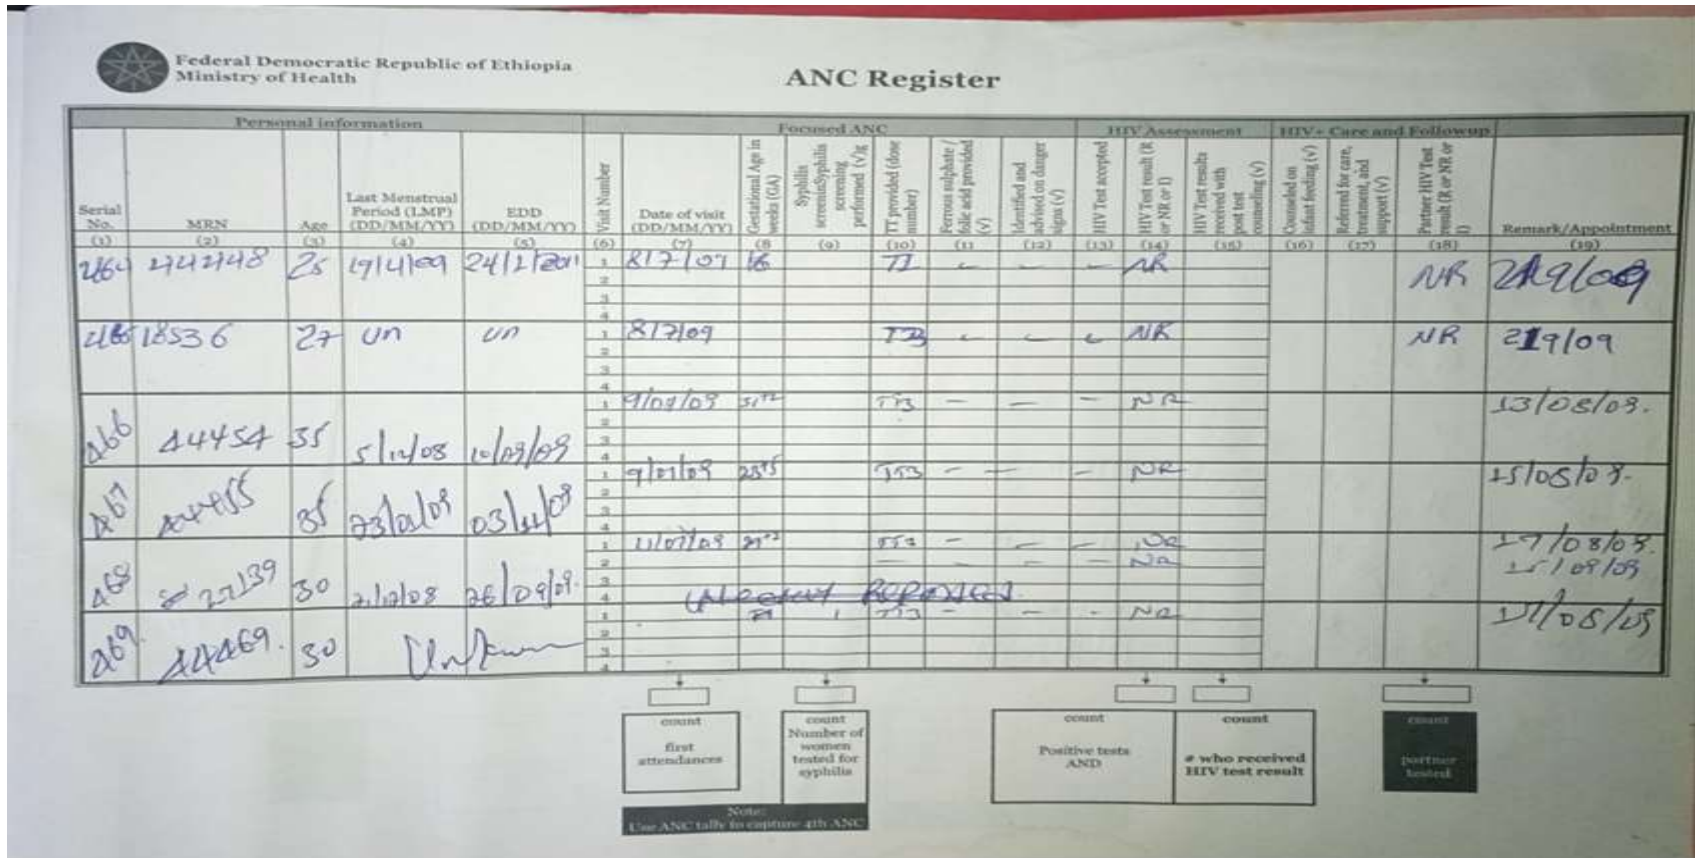 Federal Democratic Republic of Ethiopia
Ministry of Health
ANC Register
Personal information Focused ANC HIV Assessment HIV+ Care and Followup
Serial No. MRN Age Last Menstrual Period (LMP) (DD/MM/YY) EDD (DD/MM/YY) Visit Number Date of visit (DD/MM/YY) Gestational Age in weeks (GA) Syphilis screeninSyphilis screening performed (√)g TT provided (dose number) Ferrous sulphate / folic acid provided (√) Identified and advised on danger signs (√) HIV Test accepted HIV Test result (R or NR or I) HIV Test results received with post test counseling (√) Counseled on infant feeding (√) Referred for care, treatment, and support (√) Partner HIV Test result (R or NR or I) Remark/Appointment
(1) (2) (3) (4) (5) (6) (7) (8 (9) (10) (11 (12) (13) (14) (15) (16) (17) (18) (19)
25 19/4/09 1 8/7/09 16 NR NR
2
3
4
18536 27 un un 1 8/7/09 NR NR 219/09
2
3
4
466 44454 35 5/12/08 10/09/09 1 9/07/09 31+2 TT3 — — — NR 13/08/09.
2
3
4
467 44455 35 03/11/09 1 9/07/09 TT3 — — — NR 15/08/09.
2
3
4
468 27139 30 26/09/09. 1 11/07/09 TT3 — — — NR 17/08/09.
2 — — — NR 15/09/09
3
4
469. 44469. 30 Unknown 1 TT3 — — - NR 17/08/09
2
3
4
count first attendances
count Number of women tested for syphilis
count Positive tests AND
count # who received HIV test result
count partner tested
Note:
Use ANC tally to capture 4th ANC